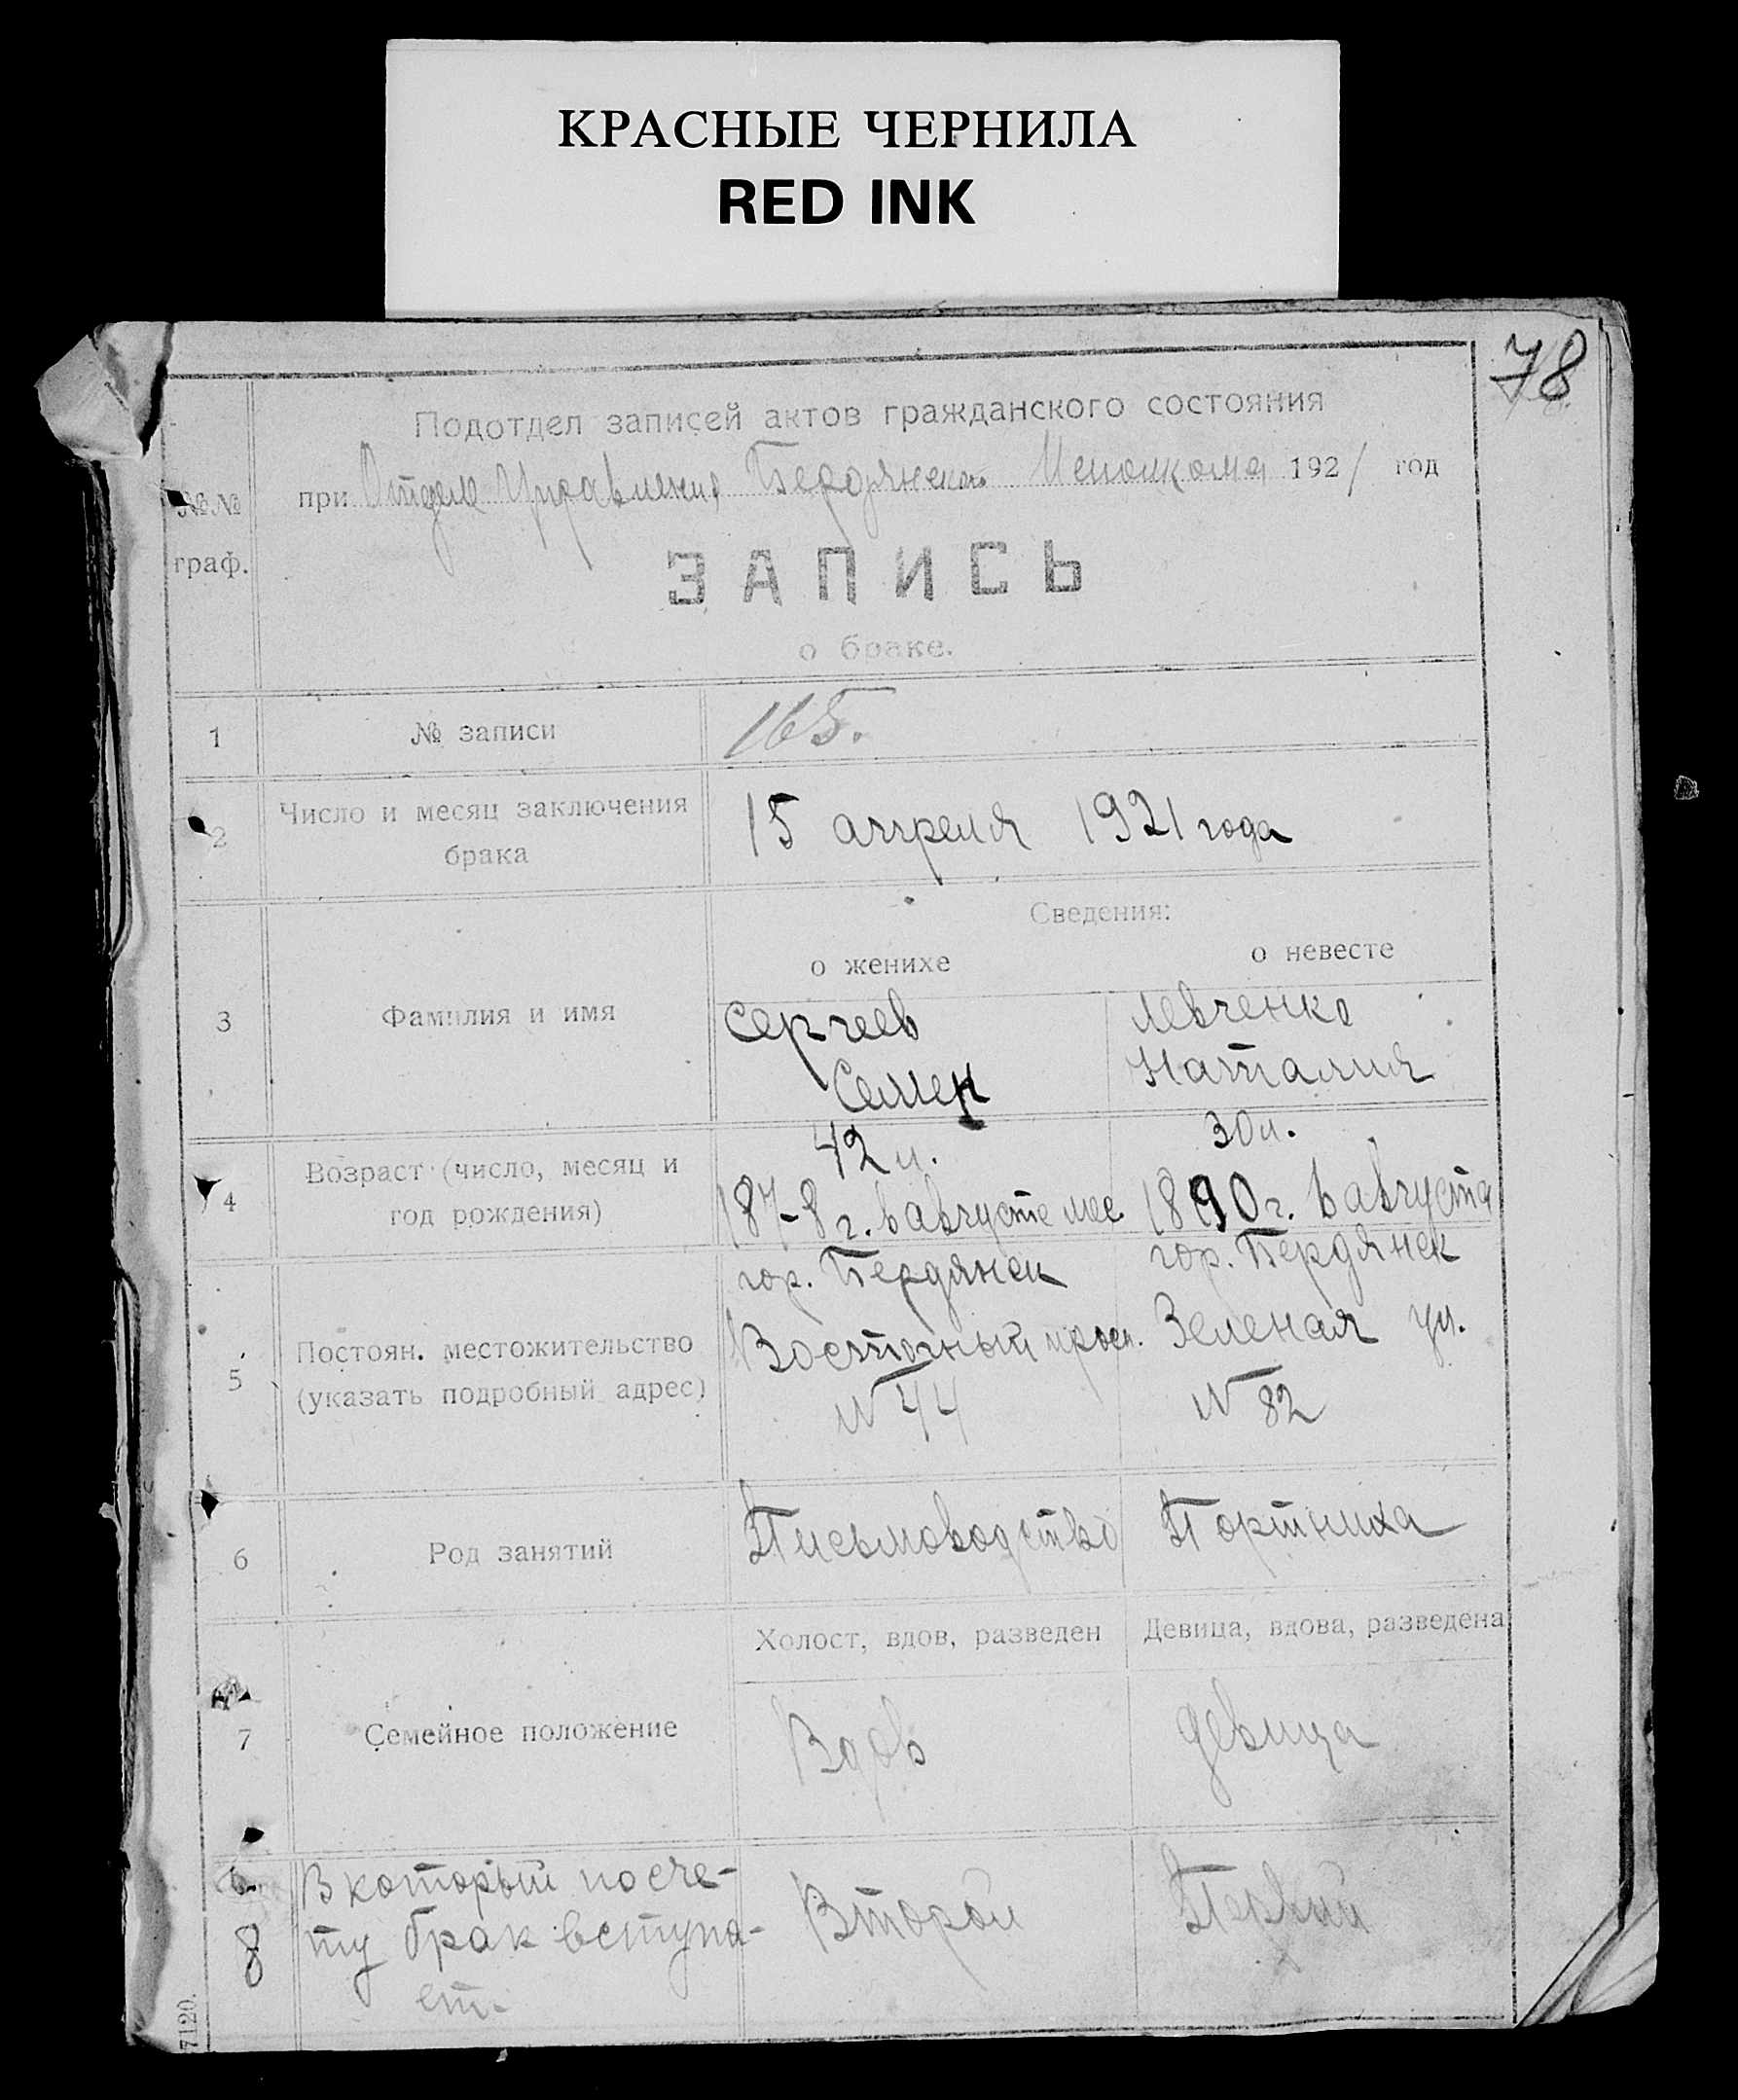 КРАСНЫЕ ЧЕРНИЛА
RED INK
78
Подотдел записей актов гражданского состояния
при Отделе Управления Бердянского Исполкома 1921 год
№№
граф.
ЗАПИСЬ
о браке.
1 № записи 165.
2 Число и месяц заключения
брака
15 апреля 1921 года
Сведения:
о женихе о невесте
3 Фамилия и имя
Сергеев Левченко
Семен Наталия
4 Возраст (число, месяц и
год рождения)
42 л. 30 л.
187-8 г. в августе мес. 1890 г. в августа
5 Постоян. местожительство
(указать подробный адрес)
гор. Бердянск гор. Бердянск
Восточный просп. Зеленая ул.
№ 44 № 82
6 Род занятий Письмоводство Портниха
Холост, вдов, разведен Девица, вдова, разведена
7 Семейное положение Вдов девица
8 В который по сче-
ту брак вступа-
ет.
Второй Первый
7120.